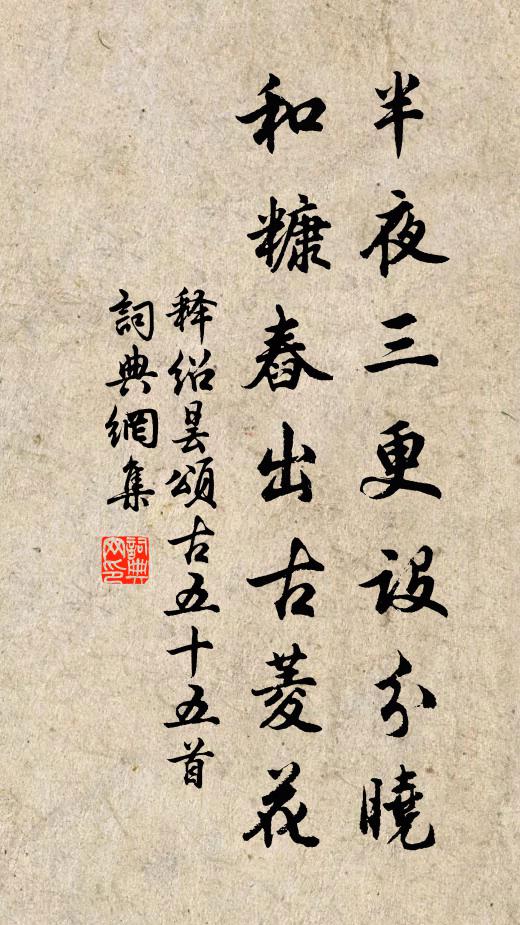 半夜三更設分曉
和糠舂出古菱花
释紹昙頌古五十五首
詞典網集
詞典网印